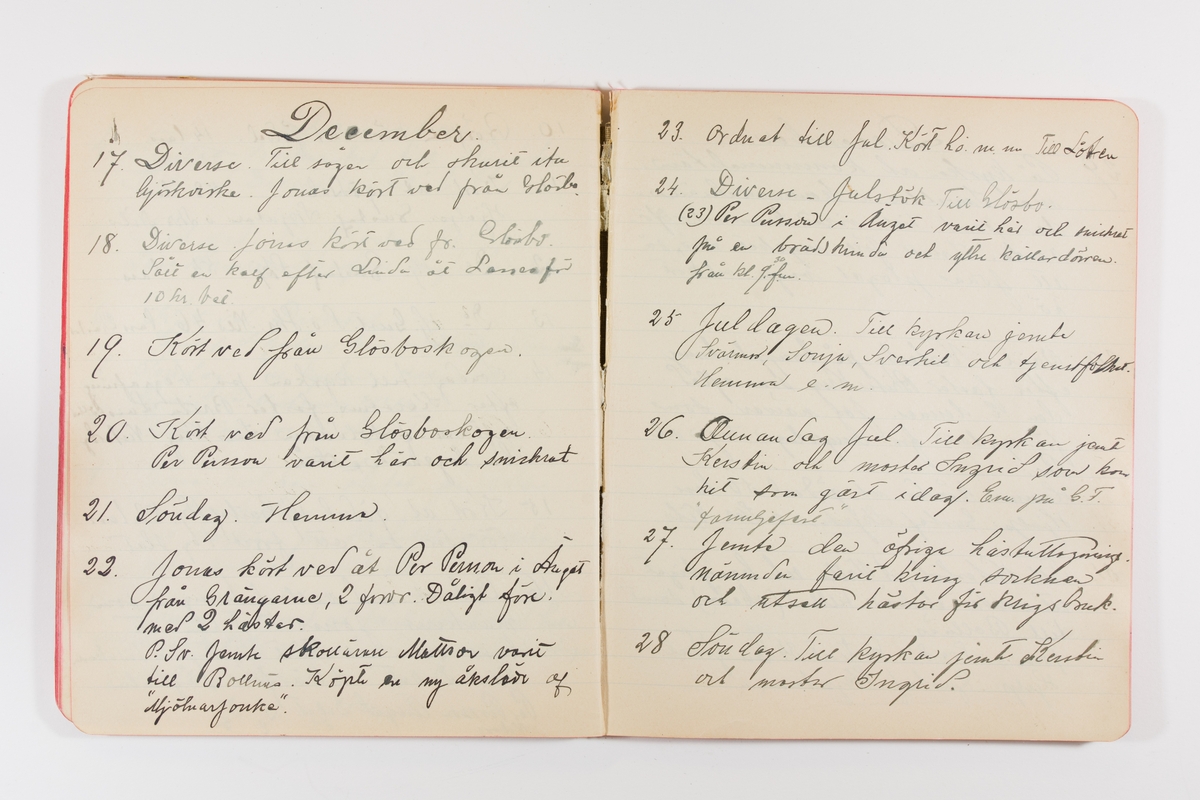 December.
17. Diverse. Till sågen och skurit itu
björkvirke. Jonas kört ved från Glösbo.
18. Diverse. Jonas kört ved fr. Glösbo.
Sålt en kalf efter Linda åt Lasses för
10 kr. bet.
19. Kört ved från Glösboskogen.
20. Kört ved från Glösboskogen.
Per Persson varit här och snickrat
21. Söndag. Hemma.
22. Jonas kört ved åt Per Persson i Änget
från Grängarne, 2 foror. Dåligt före.
med 2 hästar.
P. Sv. jemte skollärare Mattson varit
till Bollnäs. Köpte en ny åksläde af
"Mjölnarjonke".
23. Ordnat till Jul. Kört hö. m m Till Lötten
24. Diverse - Julstök Till Glösbo.
(23) Per Persson i Änget varit här och snickrat
på en brädskrinda och yttre källardörren.
från kl. 9.30 f.m.
25 Juldagen. Till kyrkan jemte
Svärmor, Sonja, Sverkel och tjenstfolket.
Hemma e. m.
26. Annandag Jul. Till kyrkan jemt
Kerstin och moster Ingrid som kom
hit som gäst idag. Em. på G. T.
"familjefest"
27. Jemte den öfriga hästuttagnings-
nämnden farit kring socknen
och uttagit hästar för krigsbruk.
28 Söndag. Till kyrkan jemte Kerstin
och moster Ingrid.